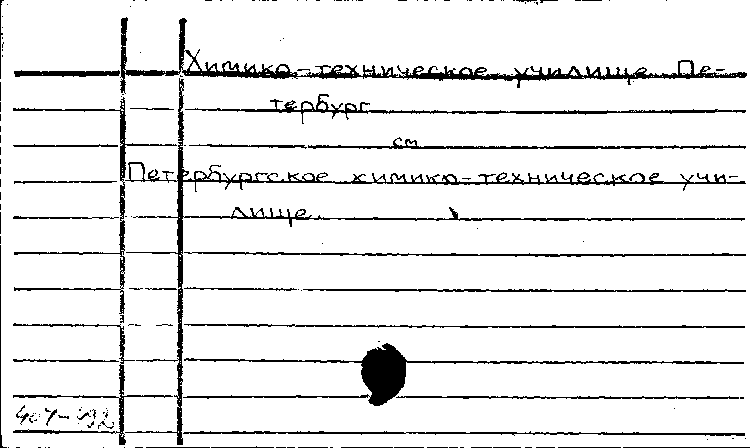 Химико-техническое училище. Пе-
тербург
см
Петербургское химико-техническое учи-
лище.